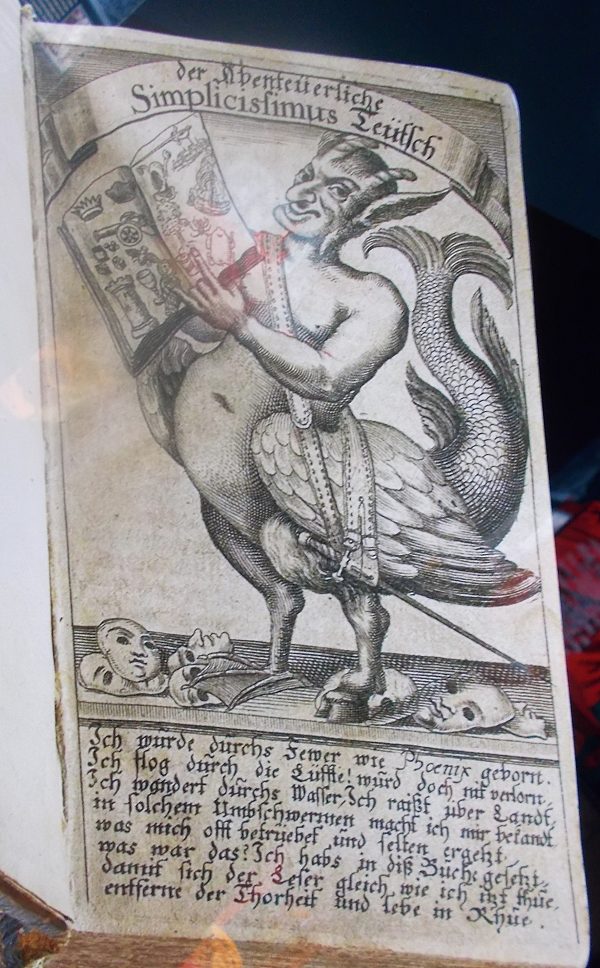 der Abenteuerliche
Simplicissimus Teütsch
Ich wurde durchs Fewer wie Phœnix geborn.
Ich flog durch die Lüffte! wurd doch nit verlorn,
Ich wandert durchs Wasser, Ich raißt über Landt,
in solchem Umbschwermen macht ich mir bekandt
was mich offt betruebet und selten ergetzt,
was war das? Ich habs in diß Buche gesetzt,
damit sich der Leser gleich, wie ich itzt thue,
entferne der Thorheit und lebe in Rhue.